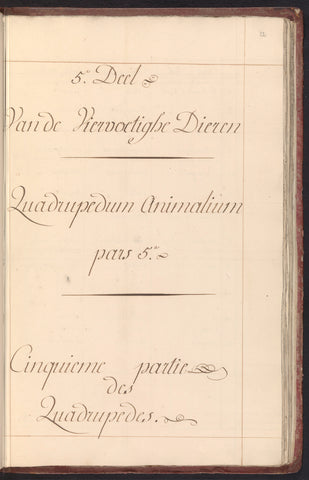 5.e Deel
Van de Viervoetighe Dieren
Quadrupedum Animalium
pars 5.a
Cinquieme partie
des
Quadrupedes.